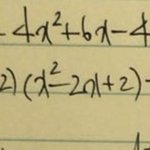 - 4x²+6x-4
2)(x²-2x+2)-